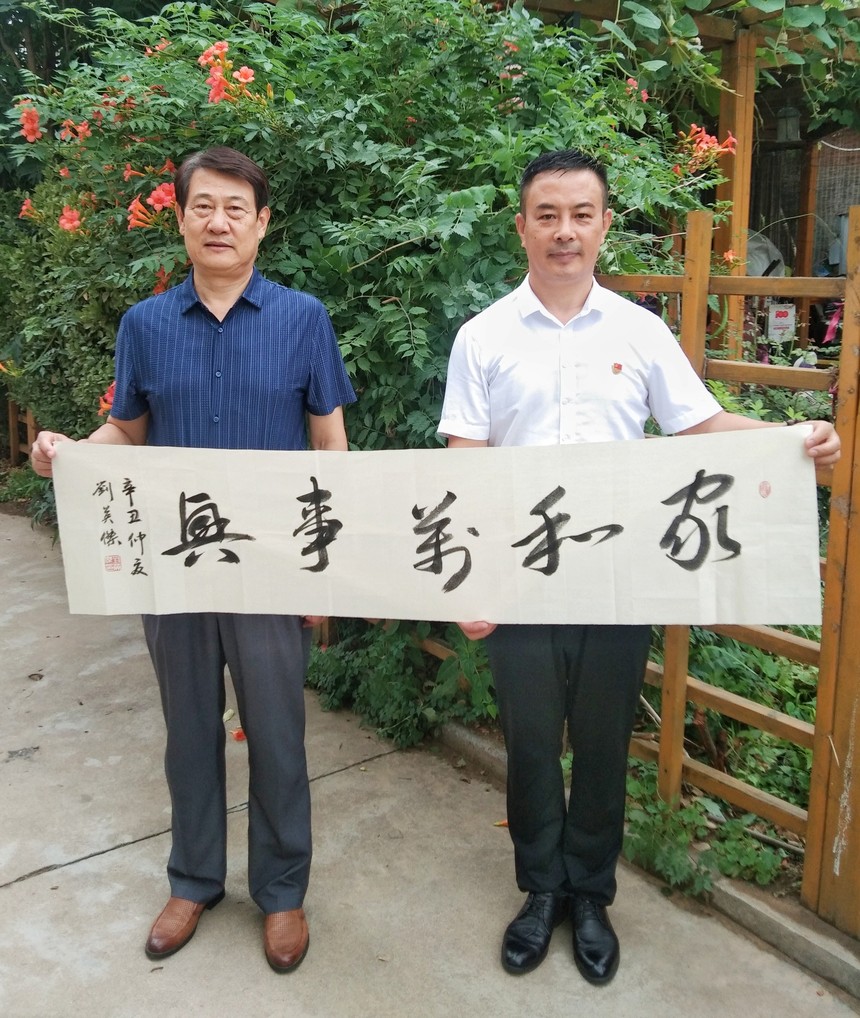 家和萬事興
辛丑仲夏
劉英傑